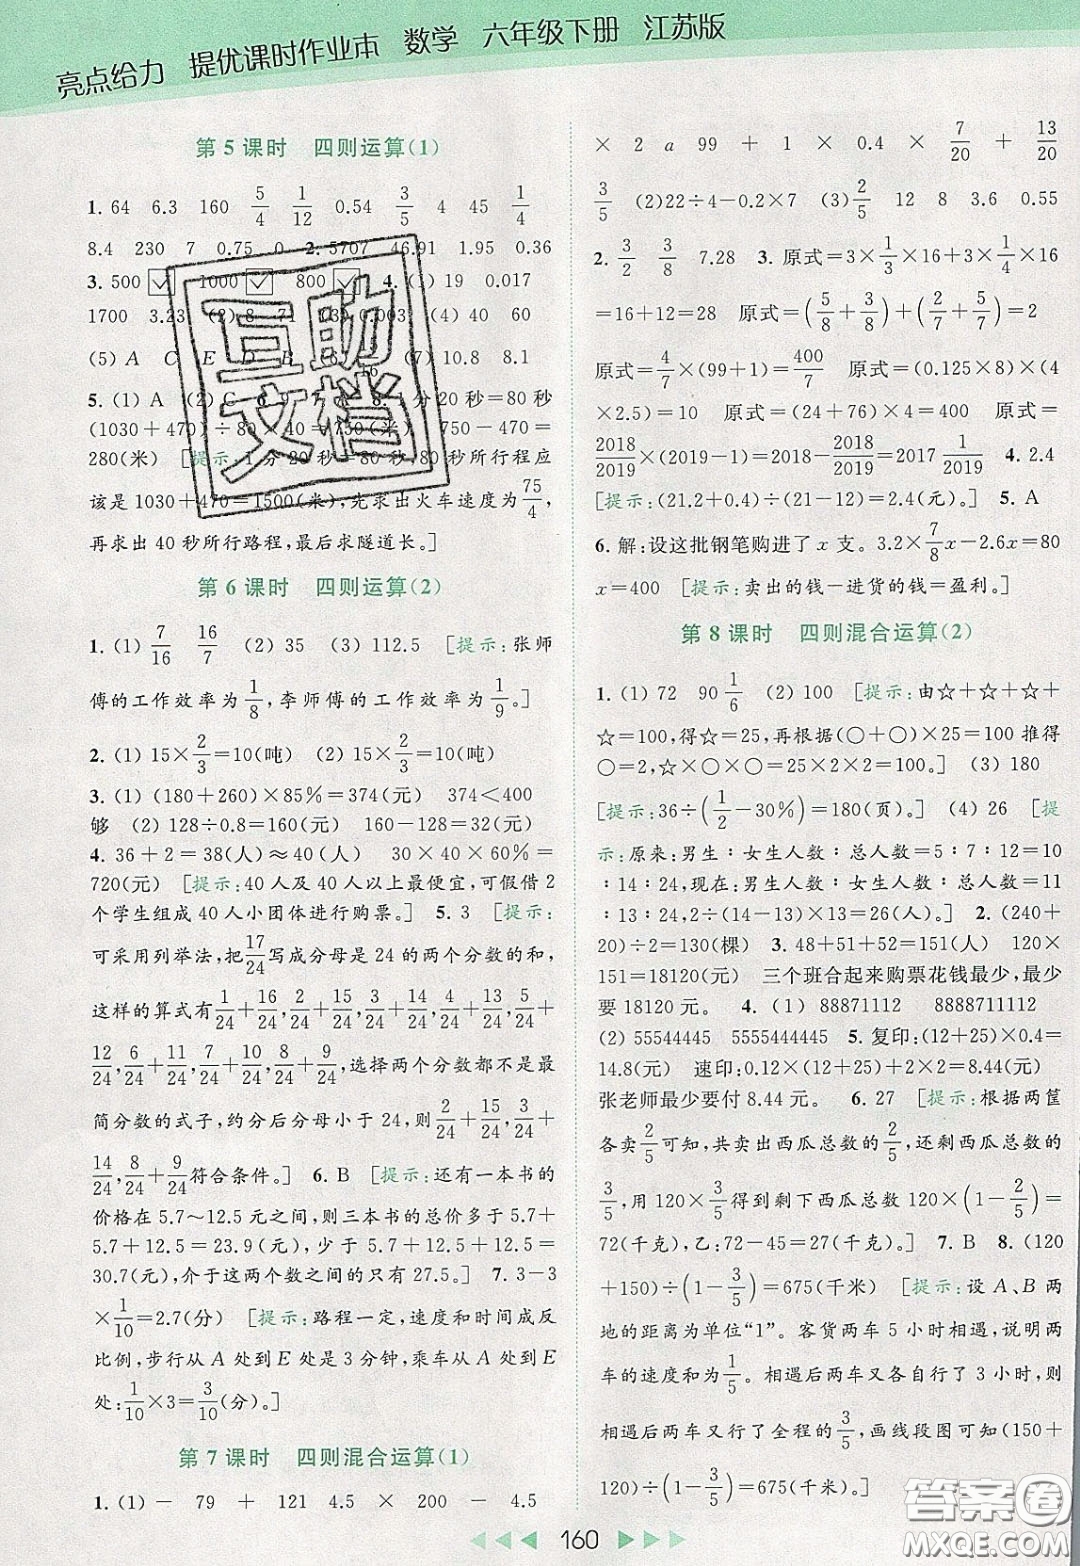 亮点给力 提优课时作业本 数学 六年级下册 江苏版
第5课时 四则运算(1)
1. 64 6.3 160 5/4 1/12 0.54 3/5 4 45 1/4
8.4 230 7 0.75 0 2. 5707 46.91 1.95 0.36
3. 500 ☑ 1000 ☑ 800 ☑ 4. (1) 19 0.017
1700 3.23 (2) 8 71 133 0.063 (4) 40 60
(5) A C E D B (7) 10.8 8.1
5. (1) A (2) C 1分20秒=80秒
(1030+470)÷80×40=750(米) 750-470=
280(米) [提示:1分20秒=80秒,80秒所行路程应
该是1030+470=1500(米),先求出火车速度为75/4,
再求出40秒所行路程,最后求隧道长。]
第6课时 四则运算(2)
1. (1) 7/16 16/7 (2) 35 (3) 112.5 [提示:张师
傅的工作效率为1/8,李师傅的工作效率为1/9。]
2. (1) 15×2/3=10(吨) (2) 15×2/3=10(吨)
3. (1) (180+260)×85%=374(元) 374<400
够 (2) 128÷0.8=160(元) 160-128=32(元)
4. 36+2=38(人)≈40(人) 30×40×60%=
720(元) [提示:40人及40人以上最便宜,可假借2
个学生组成40人小团体进行购票。] 5. 3 [提示:
可采用列举法,把17/24写成分母是24的两个分数的和,
这样的算式有1/24+16/24,2/24+15/24,3/24+14/24,4/24+13/24,5/24+
12/24,6/24+11/24,7/24+10/24,8/24+9/24,选择两个分数都不是最
简分数的式子,约分后分母小于24,则2/24+15/24,3/24+
14/24,8/24+9/24符合条件。] 6. B [提示:还有一本书的
价格在5.7~12.5元之间,则三本书的总价多于5.7+
5.7+12.5=23.9(元),少于5.7+12.5+12.5=
30.7(元),介于这两个数之间的只有27.5。] 7. 3-3
×1/10=2.7(分) [提示:路程一定,速度和时间成反
比例,步行从A处到E处是3分钟,乘车从A处到E
处:1/10×3=3/10(分)。]
第7课时 四则混合运算(1)
1. (1) - 79 + 121 4.5 × 200 - 4.5
× 2 a 99 + 1 × 0.4 × 7/20 + 13/20
3/5 (2)22÷4-0.2×7 (3)2/5 12 8 3.6 0.55
2. 3/2 3/8 7.28 3. 原式=3×1/3×16+3×1/4×16
=16+12=28 原式=(5/8+3/8)+(2/7+5/7)=2
原式=4/7×(99+1)=400/7 原式=(0.125×8)×(4
×2.5)=10 原式=(24+76)×4=400 原式=
2018/2019×(2019-1)=2018-2018/2019=2017 1/2019 4. 2.4
[提示:(21.2+0.4)÷(21-12)=2.4(元)。] 5. A
6. 解:设这批钢笔购进了x支。3.2×7/8x-2.6x=80
x=400 [提示:卖出的钱-进货的钱=盈利。]
第8课时 四则混合运算(2)
1. (1) 72 90 1/6 (2) 100 [提示:由☆+☆+☆+
☆=100,得☆=25,再根据(○+○)×☆=100推得
○=2,因此☆×○×○=25×2×2=100。] (3) 180
[提示:36÷(1/2-30%)=180(页)。] (4) 26 [提
示:原来:男生∶女生人数∶总人数=5∶7∶12=10
∶14∶24,现在:男生人数∶女生人数∶总人数=11
∶13∶24,2÷(14-13)×13=26(人)。] 2. (240
+20)÷2=130(棵) 3. 48+51+52=151(人) 120×
151=18120(元) 三个班合起来购票花钱最少,最少
要18120元。 4. (1) 88871112 8888711112
(2) 55544445 5555444445 5. 复印:(12+25)×0.4=
14.8(元) 速印:0.12×(12+25)+2×2=8.44(元)
张老师最少要付8.44元。 6. 27 [提示:根据两筐
各卖2/5可知,共卖出西瓜总数的2/5,还剩西瓜总数的
3/5,用120×3/5得到剩下西瓜总数120×(1-2/5)=
72(千克),乙:72-45=27(千克)。] 7. B 8. (120
+150)÷(1-3/5)=675(千米) [提示:设A、B两
地的距离为单位“1”。客货两车5小时相遇,说明两
车的速度和为1/5。相遇后两车又各自行了3小时,则
相遇后两车又行了全程的3/5,画线段图可知(150+
120)÷(1-3/5)=675(千米)。]
160
互助
文档
答案圈
MXQE.COM